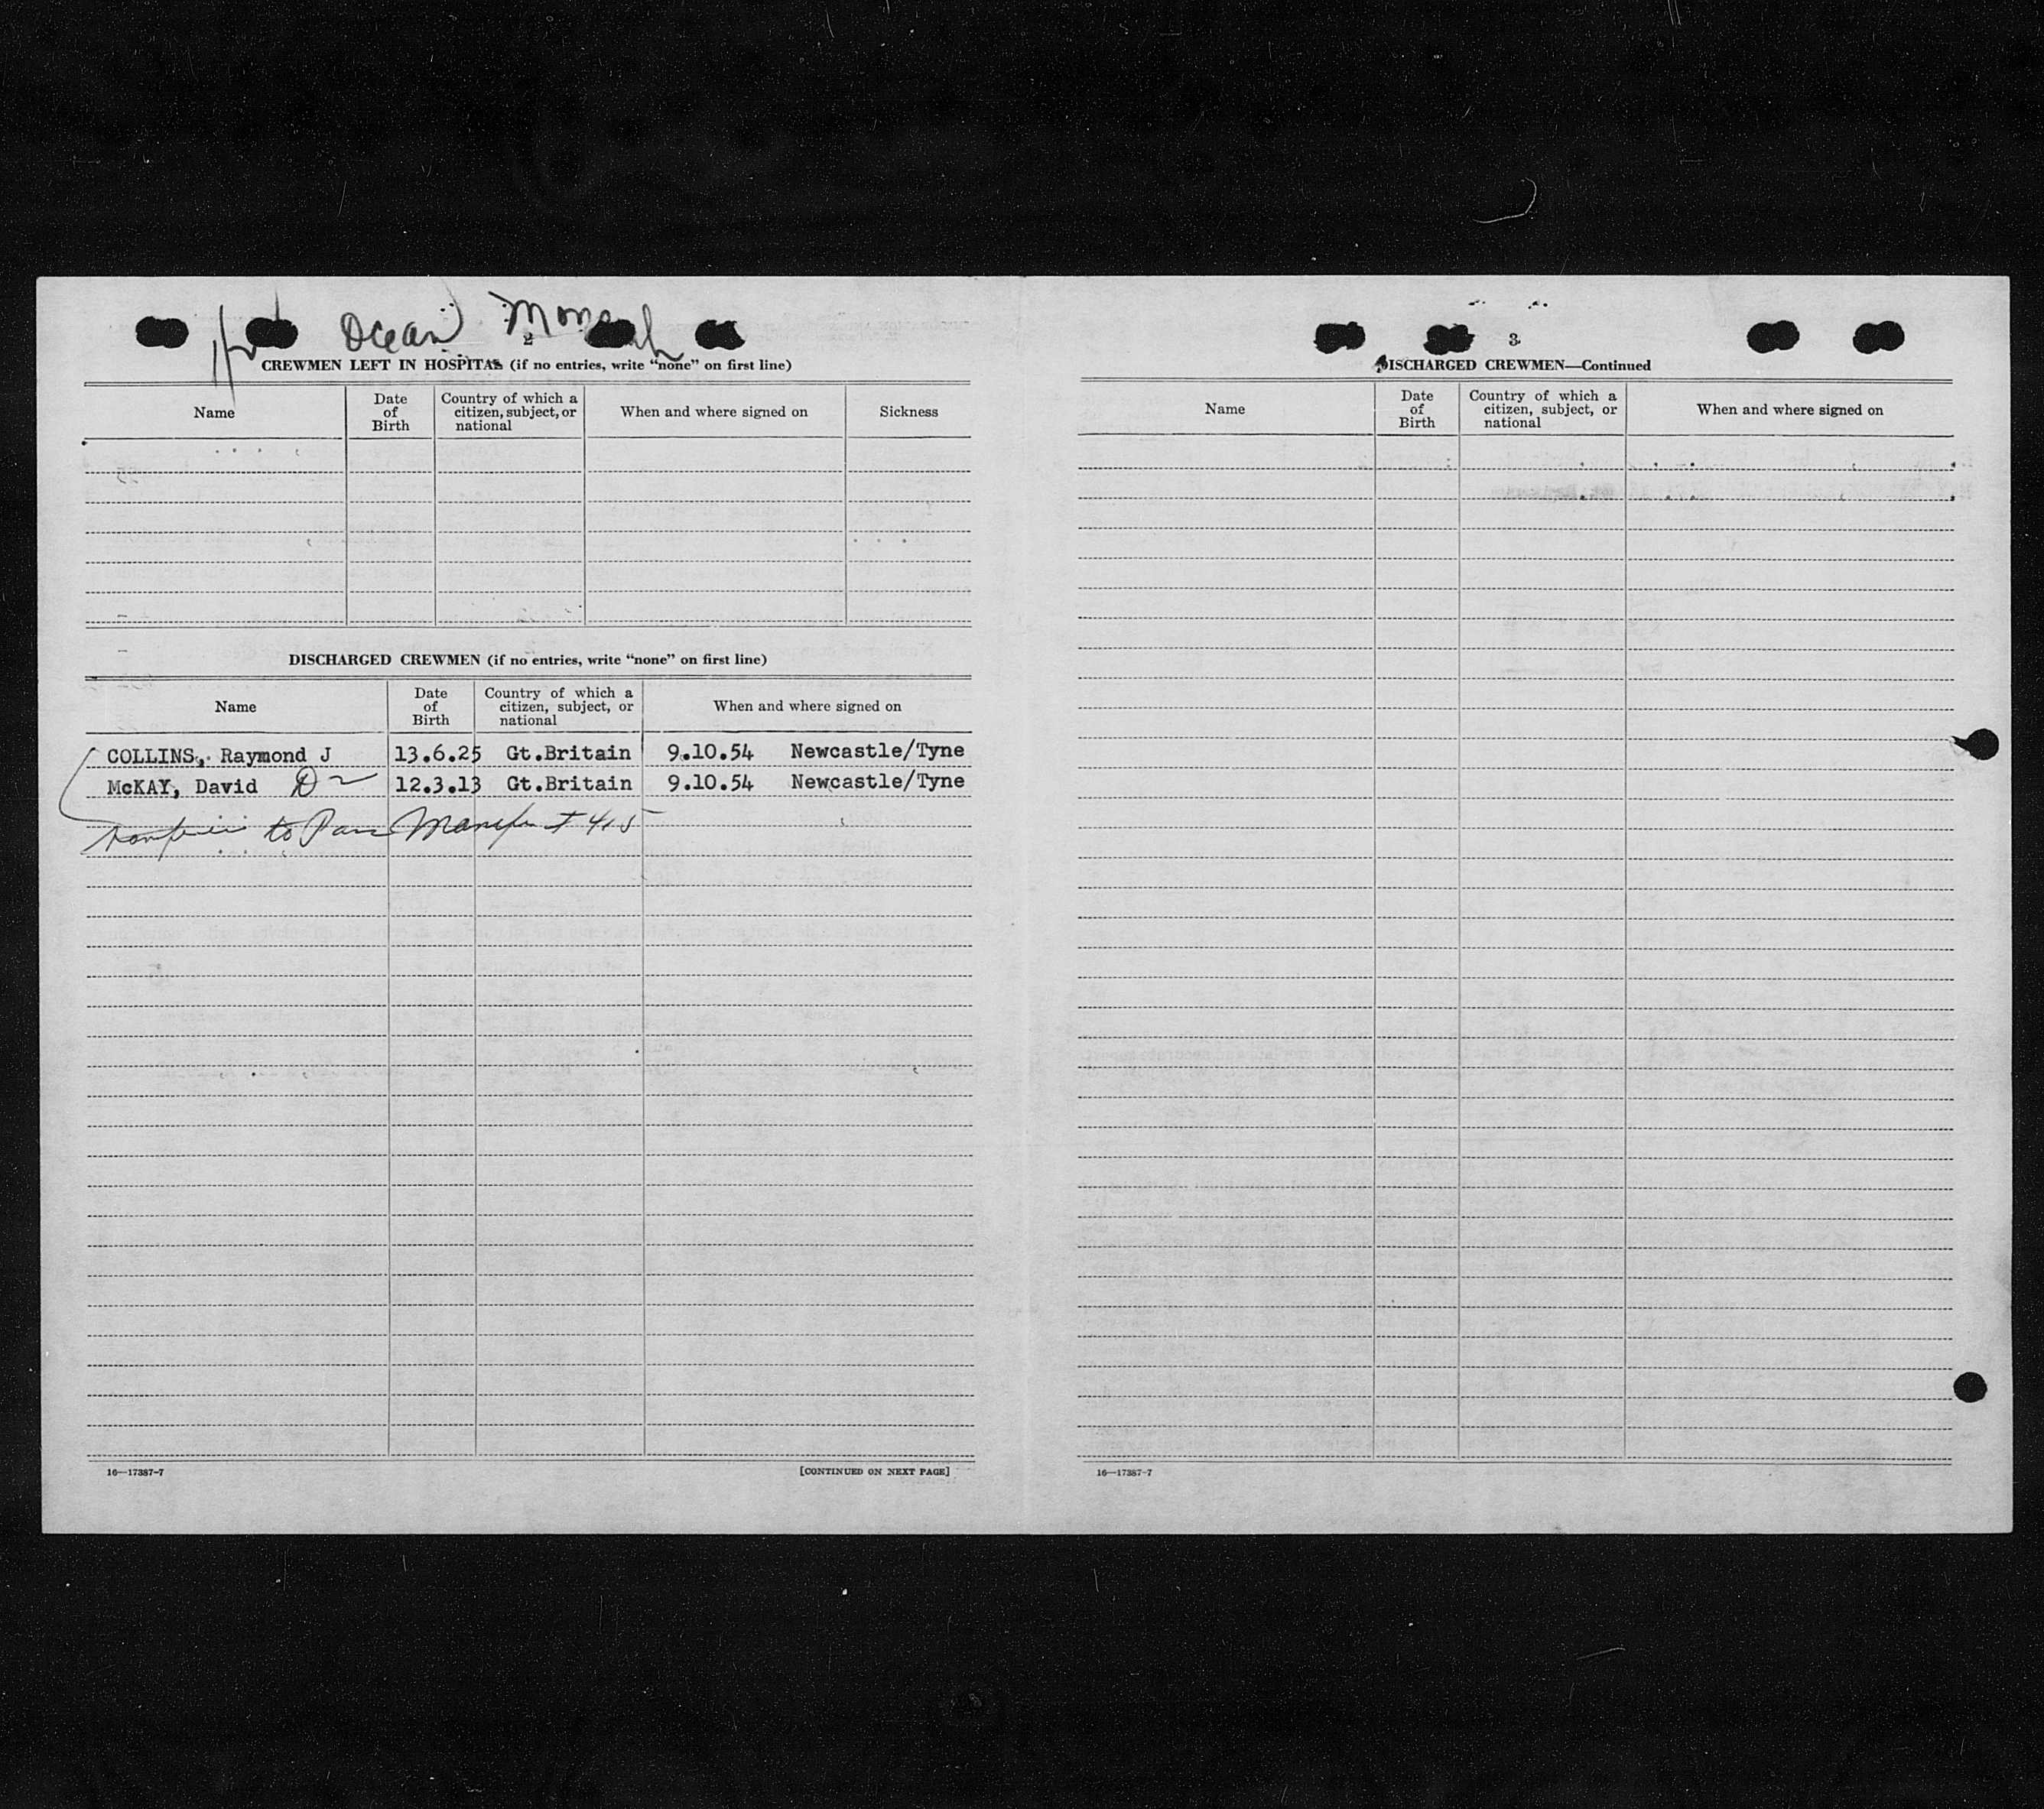 Ocean
2
CREWMEN LEFT IN HOSPITAL (if no entries, write “none” on first line)
Name
Date of Birth
Country of which a citizen, subject, or national
When and where signed on
Sickness
DISCHARGED CREWMEN (if no entries, write “none” on first line)
Name
Date of Birth
Country of which a citizen, subject, or national
When and where signed on
COLLINS, Raymond J 13.6.25 Gt.Britain 9.10.54 Newcastle/Tyne
McKAY, David 12.3.13 Gt.Britain 9.10.54 Newcastle/Tyne
to Manifest
16—17387-7
[CONTINUED ON NEXT PAGE]
3
DISCHARGED CREWMEN—Continued
Name
Date of Birth
Country of which a citizen, subject, or national
When and where signed on
16—17387-7